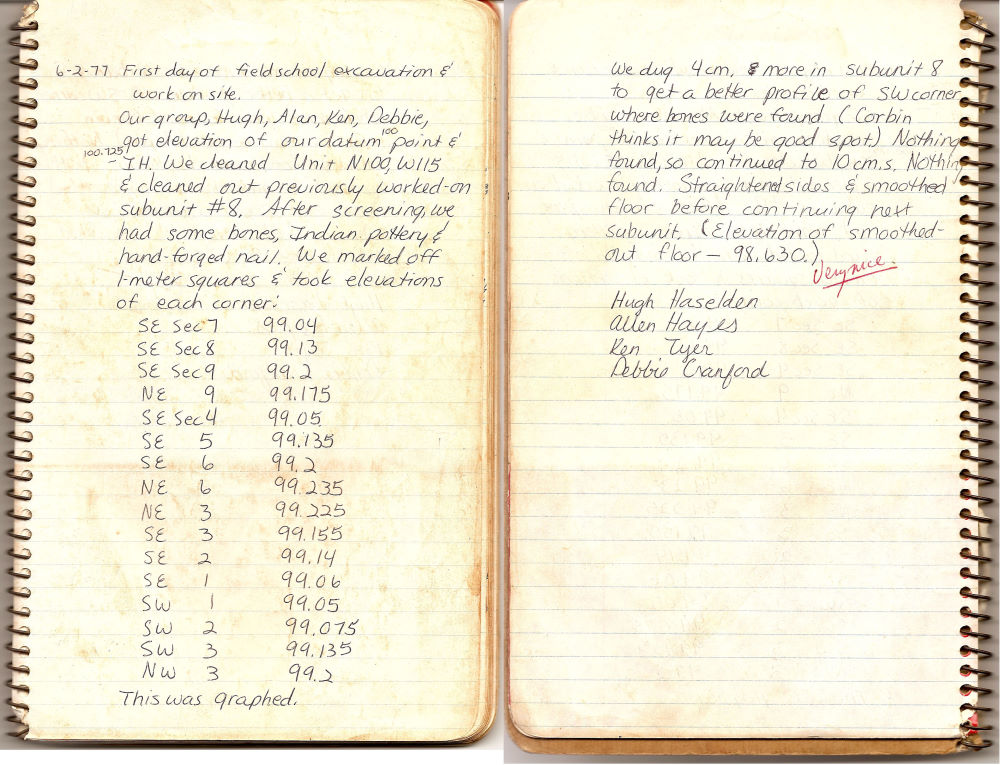 6-2-77 First day of field school excavation &
work on site.
Our group, Hugh, Alan, Ken, Debbie,
got elevation of our datum 100 point &
100.725 - IH. We cleaned Unit N100, W115
& cleaned out previously worked-on
subunit #8. After screening, we
had some bones, Indian pottery &
hand-forged nail. We marked off
1-meter squares & took elevations
of each corner:
SE Sec 7 99.04
SE Sec 8 99.13
SE Sec 9 99.2
NE 9 99.175
SE Sec 4 99.05
SE 5 99.135
SE 6 99.2
NE 6 99.235
NE 3 99.225
SE 3 99.155
SE 2 99.14
SE 1 99.06
SW 1 99.05
SW 2 99.075
SW 3 99.135
NW 3 99.2
This was graphed.
We dug 4cm. & more in subunit 8
to get a better profile of SW corner
where bones were found (Corbin
thinks it may be good spot.) Nothing
found, so continued to 10 cm.s. Nothing
found. Straightened sides & smoothed
floor before continuing next
subunit. (Elevation of smoothed-
out floor - 98.630.)
Very nice.
Hugh Haselden
Allen Hayes
Ken Tyer
Debbie Cranford